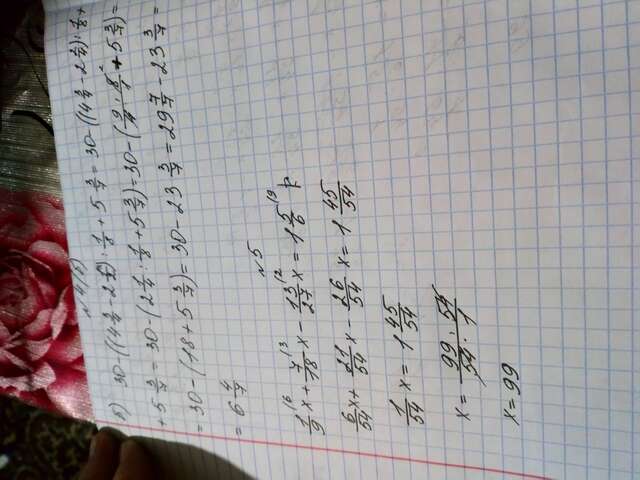 №4(б)
б) 30-((4 3/4-2 1/2):1/8+5 3/7=30-((4 3/4-2 2/4):1/8+
+5 3/7=30-(2 1/4:1/8+5 3/7)=30-(9/4·8/1+5 3/7)=
=30-(18+5 3/7)=30-23 3/7=29 7/7-23 3/7=
=6 4/7
№5
1/9x+7/18x-13/27x=1 5/6
6/54x+21/54x-26/54x=1 45/54
1/54x=1 45/54
x=99·54/54·1
x=99